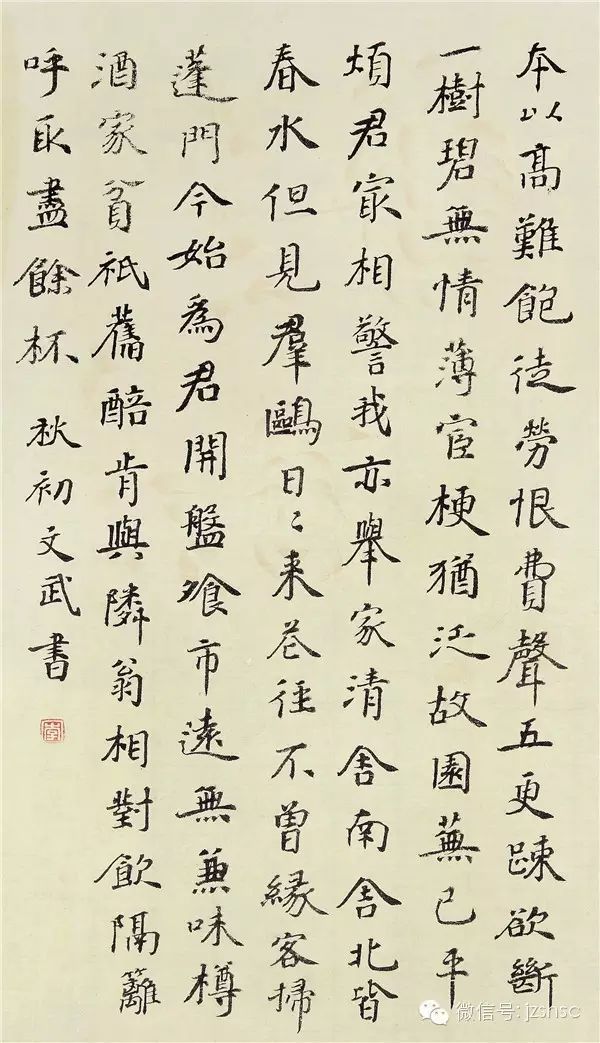 本以高難飽徒勞恨費聲五更踈欲斷
一樹碧無情薄宦梗猶泛故園蕪已平
煩君㝡相警我亦舉家清舍南舍北皆
春水但見羣鷗日〻来花徑不曾緣客掃
蓬門今始為君開盤飧市遠無兼味樽
酒家貧祇舊醅肯與隣翁相對飲隔籬
呼取盡餘杯 秋初文武書
微信号: jzshsc